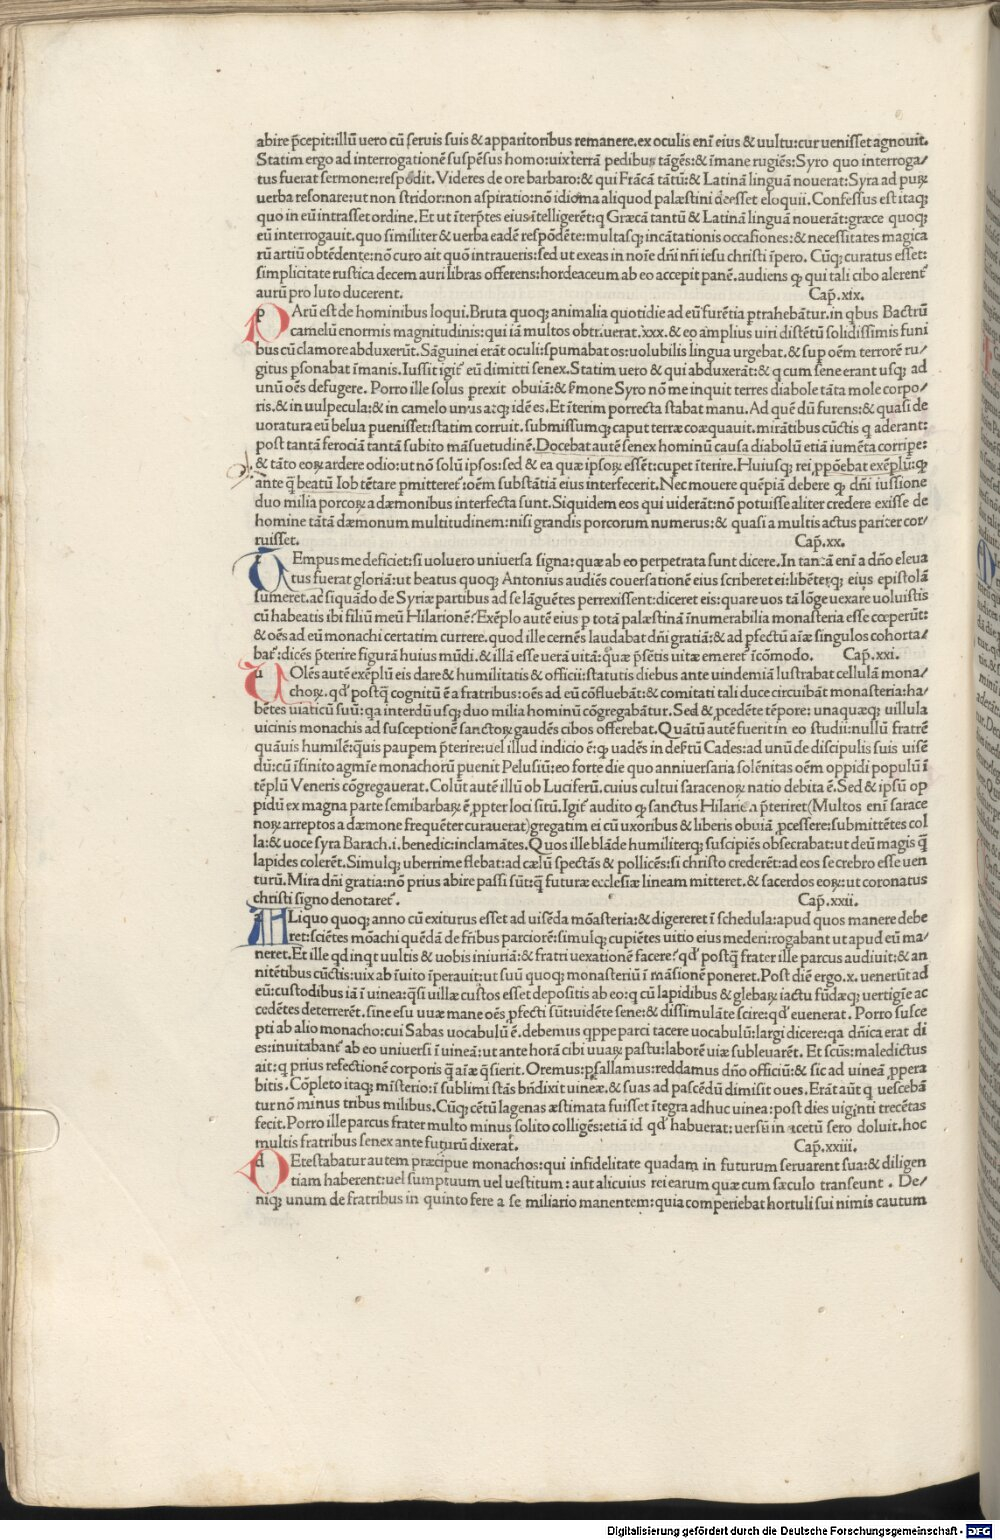 abire p̄cepit:illū uero cū seruis suis & apparitoribus remanere.ex oculis enī eius & uultu:cur uenisset agnouit.
Statim ergo ad interrogationē suspēsus homo:uix terrā pedibus tāgēs:& īmane rugiēs:Syro quo interroga/
tus fuerat sermone:respōdit.Videres de ore barbaro:& qui Frācā tātū:& Latinā linguā nouerat:Syra ad puꝝ
uerba resonare:ut non stridor:non aspiratio:nō idioma aliquod palæstini deesset eloquii. Confessus est itaqꝫ
quo in eū intrasset ordine.Et ut īterp̄tes eius ītelligerēt:q Græcā tantū & Latinā linguā nouerāt:græce quoqꝫ
eū interrogauit.quo similiter & uerba eadē respōdēte:multasqꝫ incātationis occasiones:& necessitates magica
rū artiū obtēdente:nō curo ait quō intraueris:sed ut exeas in noīe dn̄i nr̄i iesu christi īpero. Cūqꝫ curatus esset:
simplicitate rustica decem auri libras offerens:hordeaceum ab eo accepit panē.audiens ꝙ qui tali cibo alerent᷑
aurū pro luto ducerent. Cap̄.xix.
PArū est de hominibus loqui.Bruta quoqꝫ animalia quotidie ad eū furētia ꝑtrahebātur.in qbus Bactrū
camelū enormis magnitudinis:qui iā multos obtriuerat.xxx.& eo amplius uiri distētū solidissimis funi
bus cū clamore abduxerūt.Sāguinei erāt oculi:spumabat os:uolubilis lingua urgebat.& suꝑ oēm terrorē ru/
gitus ꝑsonabat īmanis.Iussit igit᷑ eū dimitti senex.Statim uero & qui abduxerāt:& q cum sene erant usqꝫ ad
unū oēs defugere. Porro ille solus prexit obuiā:& sermone Syro nō me inquit terres diabole tāta mole corpo/
ris.& in uulpecula:& in camelo unus atqꝫ idē es.Et īterim porrecta stabat manu. Ad quē dū furens:& quasi de
uoratura eū belua ꝑuenisset:statim corruit.submissumqꝫ caput terræ coæquauit.mirātibus cūctis q aderant:
post tantā ferociā tantā subito māsuetudinē.Docebat autē senex hominū causa diabolū etiā iumēta corripe:
& tāto eoꝝ ardere odio:ut nō solū ipsos:sed & ea quæ ipsoꝝ essēt:cupet īterire.Huiusqꝫ rei ꝓpōebat exēplū:ꝙ
ante q̄ beatū Iob tētare ꝑmitteret᷑:oēm substātiā eius interfecerit.Nec mouere quēpiā debere ꝙ dn̄i iussione
duo milia porcoꝝ a dæmonibus interfecta sunt. Siquidem eos qui uiderāt:nō potuisse aliter credere exisse de
homine tātā dæmonum multitudinem:nisi grandis porcorum numerus:& quasi a multis actus pariter cor/
ruisset. Cap̄.xx.
TEmpus me deficiet:si uoluero uniuersa signa:quæ ab eo perpetrata sunt dicere.In tantā enī a dn̄o eleua
tus fuerat gloriā:ut beatus quoqꝫ Antonius audiēs cōuersationē eius scriberet ei:libēterqꝫ eius epistolā
sumeret.ac siquādo de Syriæ partibus ad se lāguētes perrexissent:diceret eis:quare uos tā lōge uexare uoluistis
cū habeatis ibi filiū meū Hilarionē?Exēplo autē eius ꝑ totā palæstinā īnumerabilia monasteria esse cœperūt:
& oēs ad eū monachi certatim currere.quod ille cernēs laudabat dn̄i gratiā:& ad ꝓfectū aīæ singulos cohorta/
bat᷑:dicēs p̄terire figurā huius mūdi.& illā esse uerā uitā:quæ p̄sētis uitæ emeret᷑ īcōmodo. Cap̄.xxi.
UOlēs autē exēplū eis dare & humilitatis & officii:statutis diebus ante uindemiā lustrabat cellulā mona/
choꝝ.qd᷑ postq̄ cognitū ē a fratribus:oēs ad eū cōfluebāt:& comitati tali duce circuibāt monasteria:ha/
bētes uiaticū suū:qa interdū usqꝫ duo milia hominū cōgregabātur. Sed & ꝓcedēte tēpore: unaquæqꝫ uillula
uicinis monachis ad susceptionē sanctoꝝ gaudēs cibos offerebat.Quātū autē fuerit in eo studii:nullū fratrē
quāuis humilē:q̄uis pauꝑem p̄terire:uel illud indicio ē:ꝙ uadēs in desertū Cades:ad unū de discipulis suis uisē
dū:cū īfinito agmīe monachorū ꝑuenit Pelusiū:eo forte die quo anniuersaria solēnitas oēm oppidi populū ī
tēplū Veneris cōgregauerat. Colūt autē illū ob Luciferū.cuius cultui saracenoꝝ natio debita ē.Sed & ipsū op
pidū ex magna parte semibarbaꝝ ē ꝓpter loci sitū.Igit᷑ audito ꝙ sanctus Hilarion p̄teriret(Multos enī sarace
noꝝ arreptos a dæmone frequēter curauerat)gregatim ei cū uxoribus & liberis obuiā ꝓcessere:submittētes col
la:& uoce syra Barach.i.benedic:inclamātes.Quos ille blāde humiliterqꝫ suscipiēs obsecrabat:ut deū magis q̄
lapides colerēt.Simulqꝫ uberrime flebat:ad cælū spectās & pollicēs:si christo crederēt:ad eos se crebro esse uen
turū. Mira dn̄i gratia:nō prius abire passi sūt:q̄ futuræ ecclesiæ lineam mitteret.& sacerdos eoꝝ:ut coronatus
christi signo denotaret᷑. Cap̄.xxii.
ALiquo quoqꝫ anno cū exiturus esset ad uisēda mōasteria:& digereret ī schedula:apud quos manere debe
ret:sciētes mōachi quēdā de fr̄ibus parciorē:simulqꝫ cupiētes uitio eius mederi:rogabant ut apud eū ma/
neret.Et ille qd inqt uultis & uobis iniuriā:& fratri uexationē facere?qd᷑ postq̄ frater ille parcus audiuit:& an
nitētibus cūctis:uix ab īuito īperauit:ut suū quoqꝫ monasteriū ī māsionē poneret.Post diē ergo.x. uenerūt ad
eū:custodibus iā ī uinea:q̄si uillæ custos esset depositis ab eo:q cū lapidibus & glebaꝝ iactu fūdæqꝫ uertigīe ac
cedētes deterrerēt.sine esu uuæ mane oēs ꝓfecti sūt:uidēte sene:& dissimulāte scire:qd᷑ euenerat. Porro susce
pti ab alio monacho:cui Sabas uocabulū ē.debemus qppe parci tacere uocabulū:largi dicere:qa dn̄ica erat di
es:inuitabant᷑ ab eo uniuersi ī uineā:ut ante horā cibi uuaꝝ pastu:laborē uiæ subleuarēt. Et scūs:maledictus
ait:q prius refectionē corporis q̄ aīæ q̄sierit.Oremus:psallamus:reddamus dn̄o officiū:& sic ad uineā ꝓpera
bitis.Cōpleto itaqꝫ mīsterio:ī sublimi stās bn̄dixit uineæ.& suas ad pascēdū dimisit oues.Erāt aūt q uescebā
tur nō minus tribus milibus.Cūqꝫ cētū lagenas æstimata fuisset ītegra adhuc uinea:post dies uiginti trecētas
fecit.Porro ille parcus frater multo minus solito colligēs:etiā id qd᷑ habuerat:uersū in acetū sero doluit.hoc
multis fratribus senex ante futurū dixerat. Cap̄.xxiii.
DEtestabatur autem præcipue monachos:qui infidelitate quadam in futurum seruarent sua:& diligen
tiam haberent:uel sumptuum uel uestitum:aut alicuius rei earum quæ cum sæculo transeunt. De/
niqꝫ unum de fratribus in quinto fere a se miliario manentem:quia comperiebat hortuli sui nimis cautum
Digitalisierung gefördert durch die Deutsche Forschungsgemeinschaft - DFG